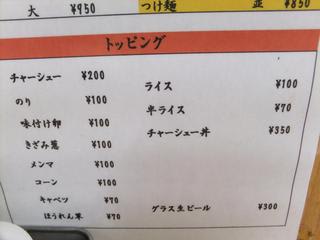 大 ¥950 つけ麺 並 ¥850
トッピング
チャーシュー ¥200
のり ¥100
味付け卵 ¥100
きざみ葱 ¥100
メンマ ¥100
コーン ¥100
キャベツ ¥70
ほうれん草 ¥70
ライス ¥100
半ライス ¥70
チャーシュー丼 ¥350
グラス生ビール ¥300